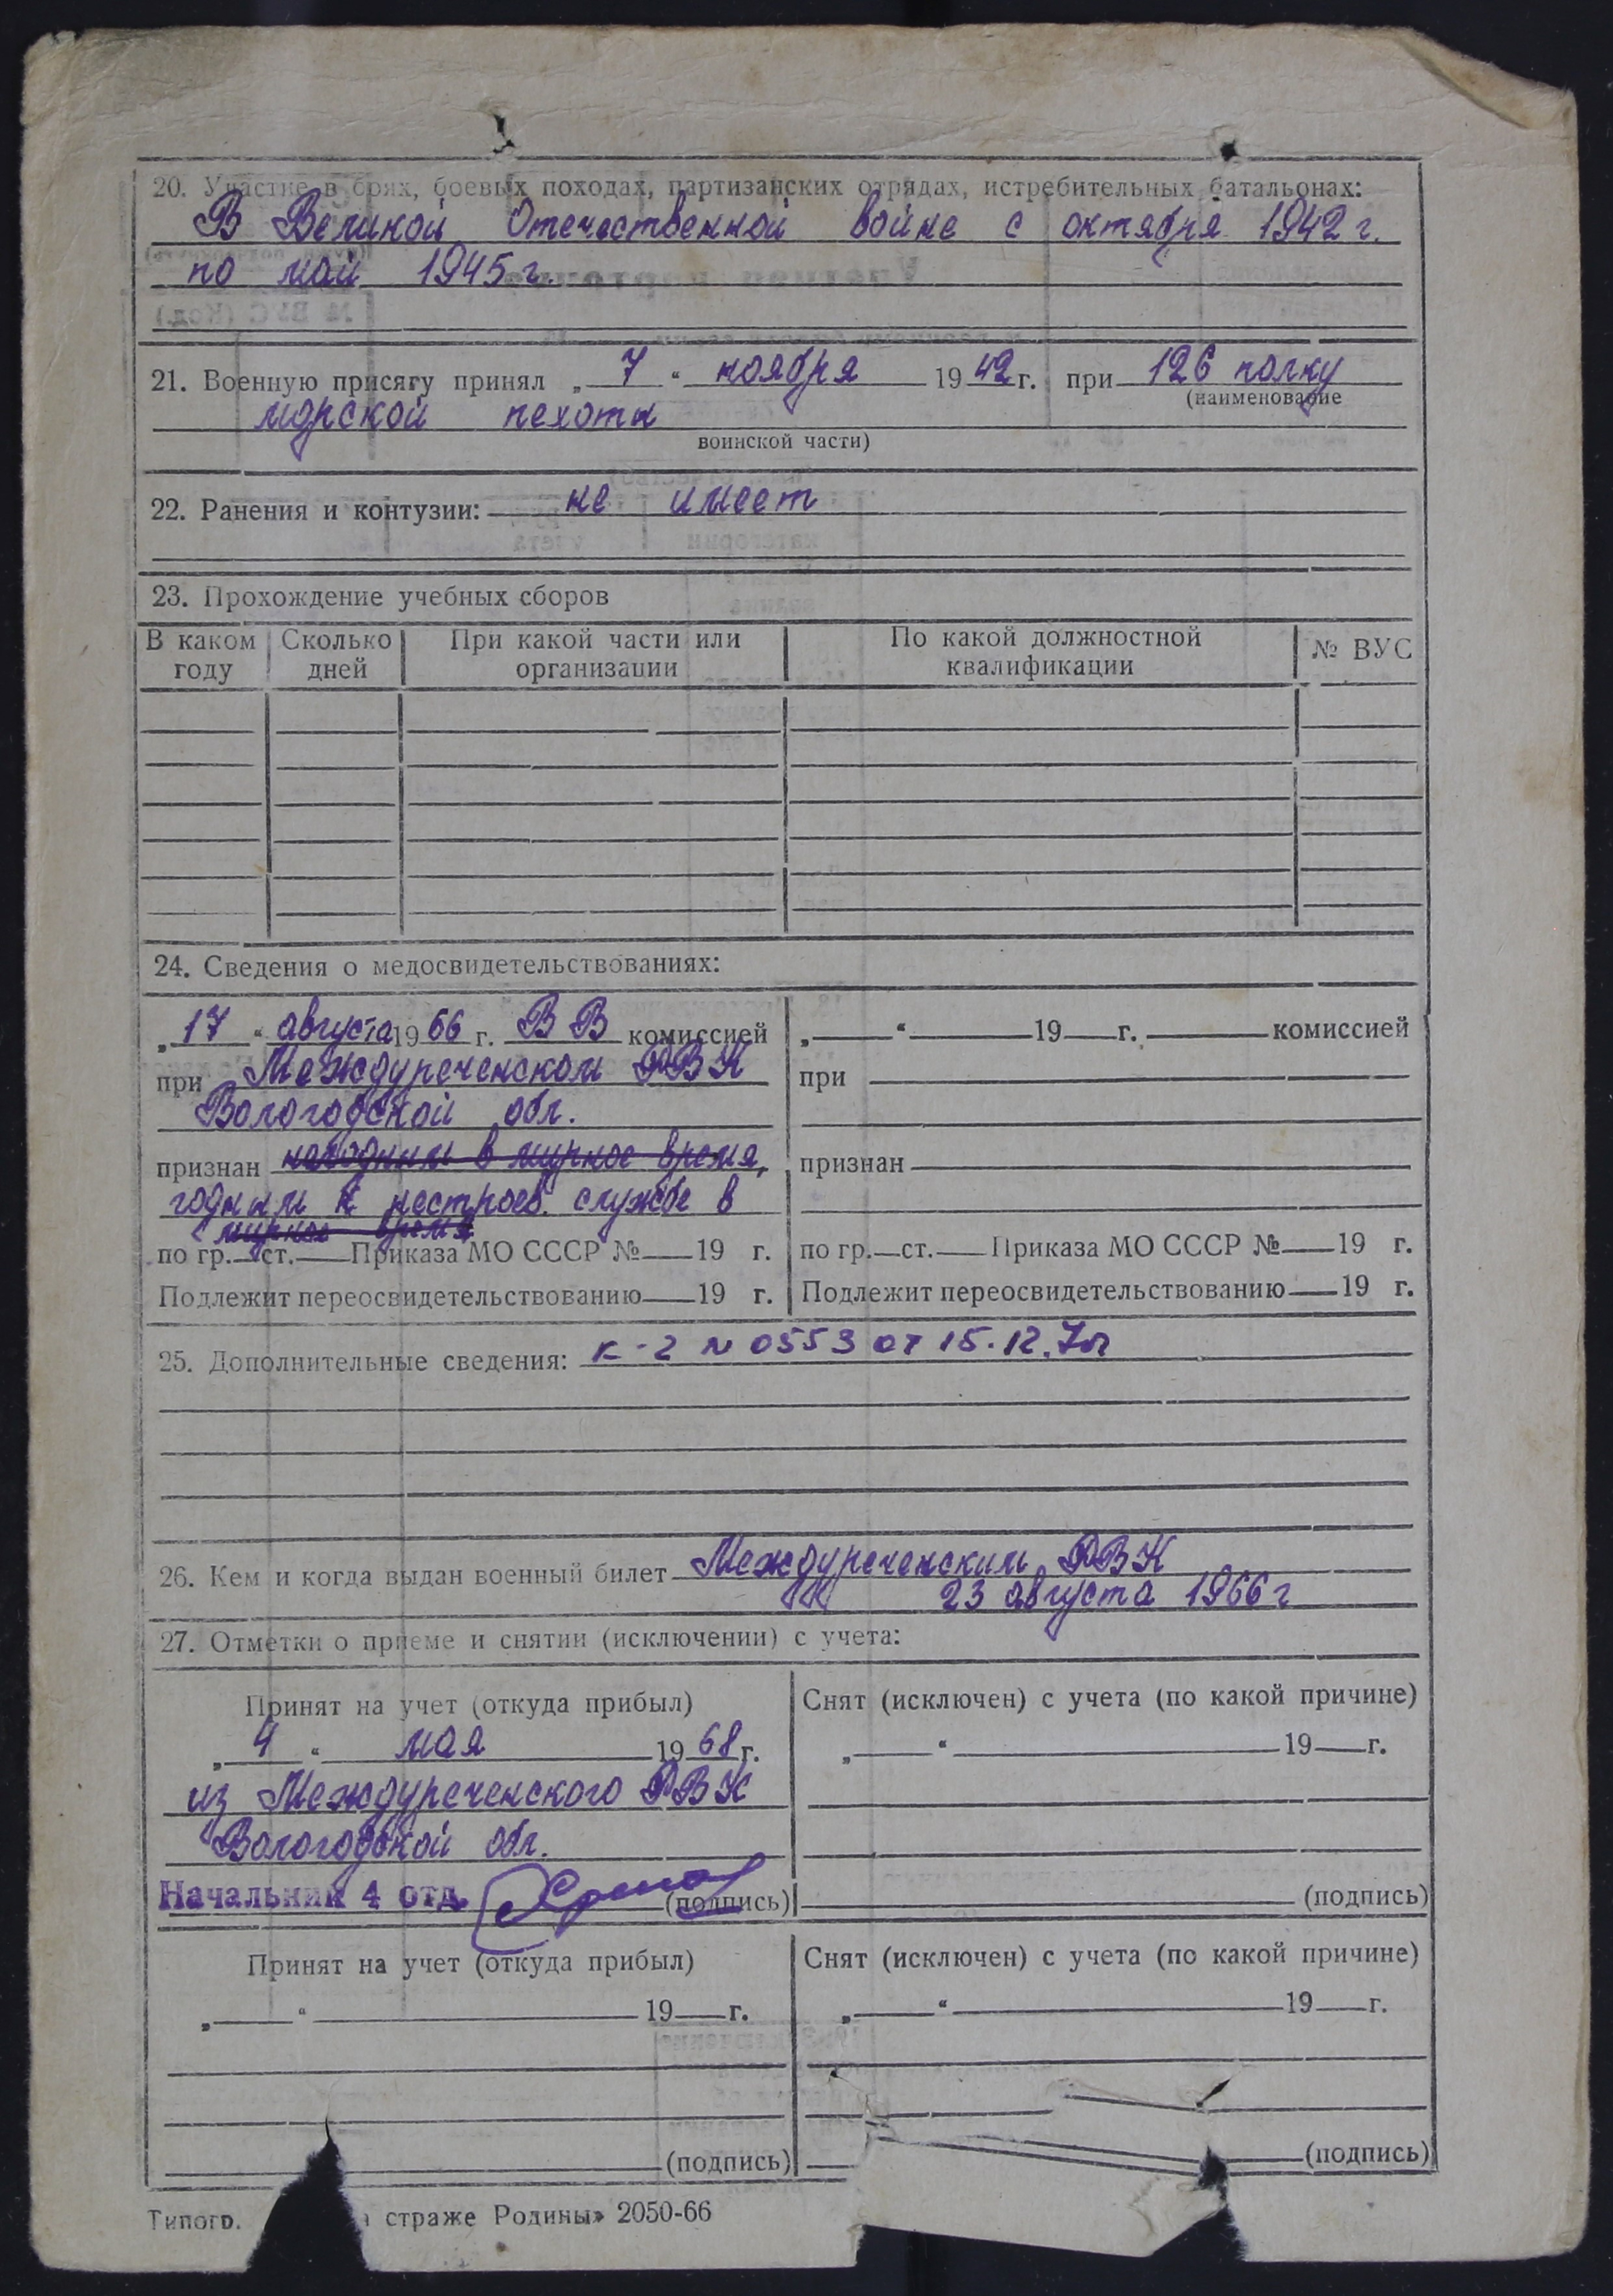 20. Участие в боях, боевых походах, партизанских отрядах, истребительных батальонах:
В Великой Отечественной войне с октября 1942 г.
по май 1945 г.
21. Военную присягу принял „ 7 “ ноября 19 42 г. при 126 полку
(наименование
морской пехоты
воинской части)
22. Ранения и контузии: не имеет
23. Прохождение учебных сборов
В каком году Сколько дней При какой части или организации По какой должностной квалификации № ВУС
24. Сведения о медосвидетельствованиях:
„ 17 “ августа 19 66 г. ВВ комиссией
при Междуреченском РВК
Вологодской обл.
признан негодным в мирное время,
годным к нестроев. службе в
мирное время
по гр. ст. Приказа МО СССР № 19 г.
Подлежит переосвидетельствованию 19 г.
„ “ 19 г. комиссией
при
признан
по гр. ст. Приказа МО СССР № 19 г.
Подлежит переосвидетельствованию 19 г.
25. Дополнительные сведения: К-2 N 0553 от 15.12.
26. Кем и когда выдан военный билет Междуреченским РВК
23 августа 1966 г
27. Отметки о приеме и снятии (исключении) с учета:
Принят на учет (откуда прибыл)
„ 4 “ мая 19 68 г.
из Междуреченского РВК
Вологодской обл.
Начальник 4 отд. (подпись)
Снят (исключен) с учета (по какой причине)
„ “ 19 г.
(подпись)
Принят на учет (откуда прибыл)
„ “ 19 г.
(подпись)
Снят (исключен) с учета (по какой причине)
„ “ 19 г.
(подпись)
Типогр. страже Родины» 2050-66